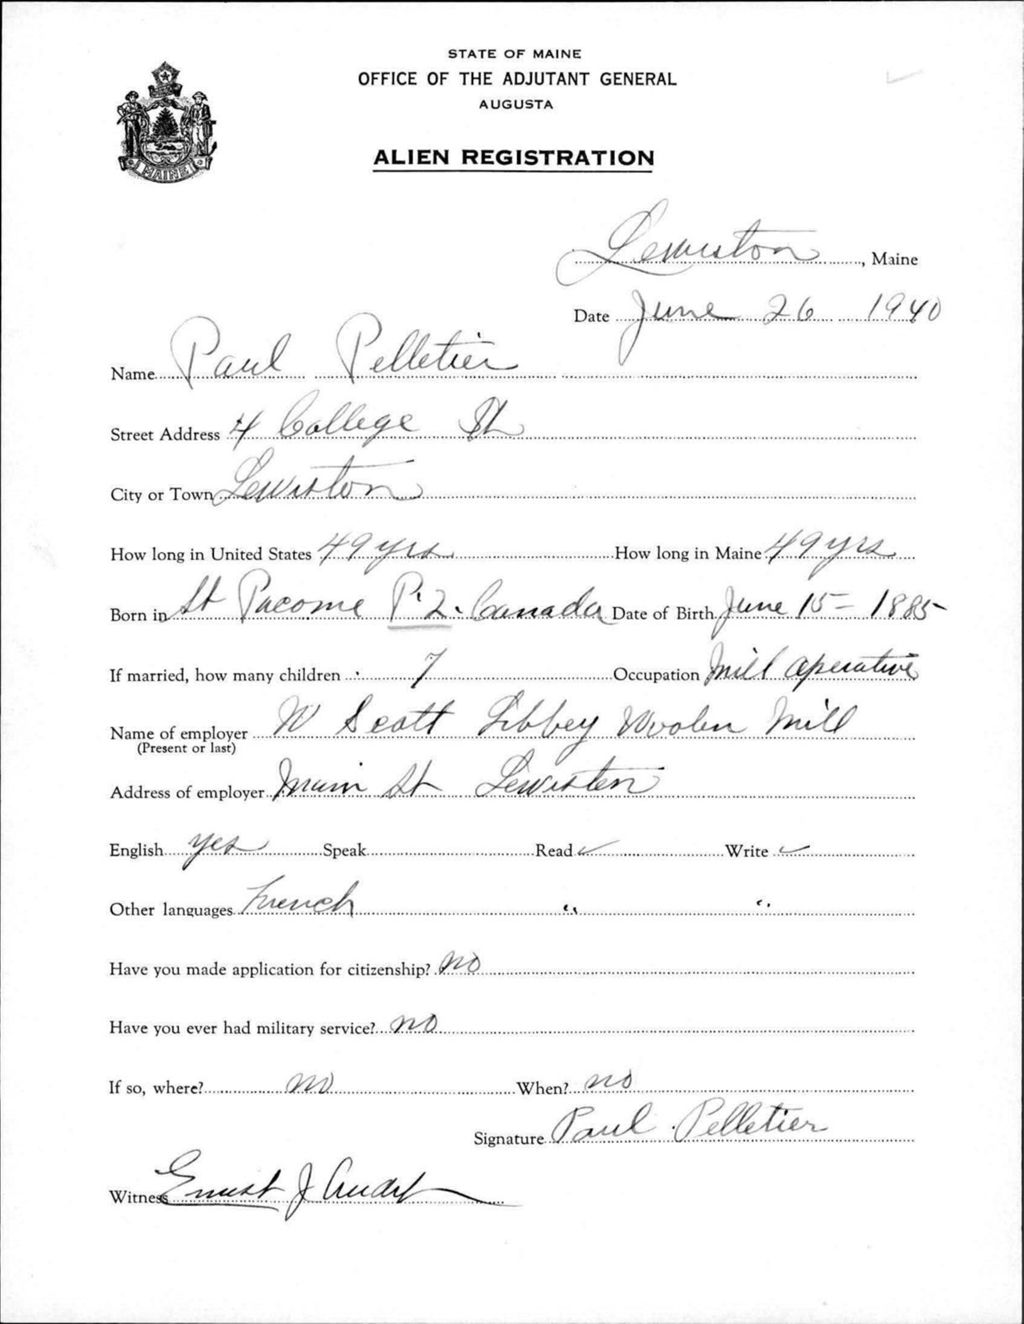 STATE OF MAINE
OFFICE OF THE ADJUTANT GENERAL
AUGUSTA
ALIEN REGISTRATION
MAINE
Lewiston, Maine
Date June 26 1940
Name Paul Pelletier
Street Address 4 College St
City or Town Lewiston
How long in United States 49 yrs How long in Maine 49 yrs
Born in St Pacome P.Q. Canada Date of Birth June 15 - 1885
If married, how many children 7 Occupation Mill Operative
Name of employer W Scott Libbey Woolen Mill
(Present or last)
Address of employer Main St Lewiston
English yes Speak Read ✓ Write ✓
Other languages French " "
Have you made application for citizenship? no
Have you ever had military service? no
If so, where? no When? no
Signature Paul Pelletier
Witness Ernest J